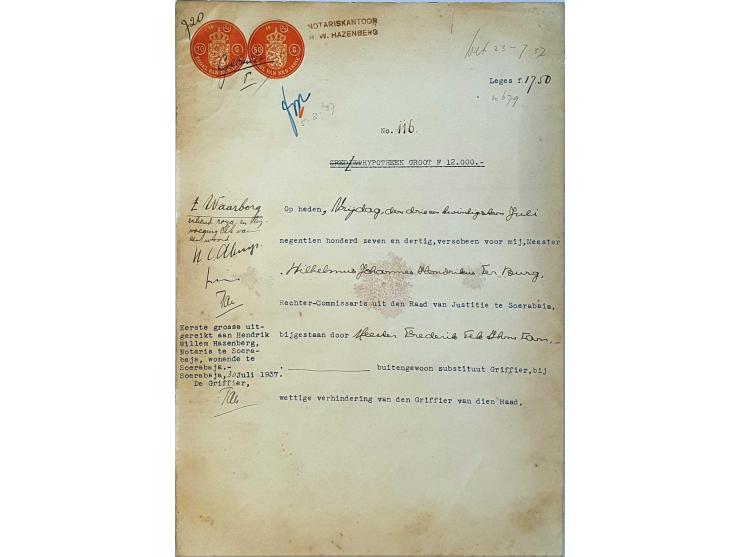 920
NOTARISKANTOOR
H. W. HAZENBERG
10 G
50 G
23-7-37
Leges f. 17.50
No. 116.
CREDIETHYPOTHEEK GROOT F 12.000.-
Waarborg
Op heden, Vrijdag, den drie en twintigsten Juli
negentien honderd zeven en dertig, verscheen voor mij, Meester
Wilhelmus Johannes Hendrikus Ter Burg,
Rechter-Commissaris uit den Raad van Justitie te Soerabaia,
bijgestaan door Meester Frederik
buitengewoon substituut Griffier, bij
wettige verhindering van den Griffier van dien Raad,
Eerste grosse uit-
gereikt aan Hendrik
Willem Hazenberg,
Notaris te Soera-
baja, wonende te
Soerabaja.-
Soerabaja, 30 Juli 1937.
De Griffier,